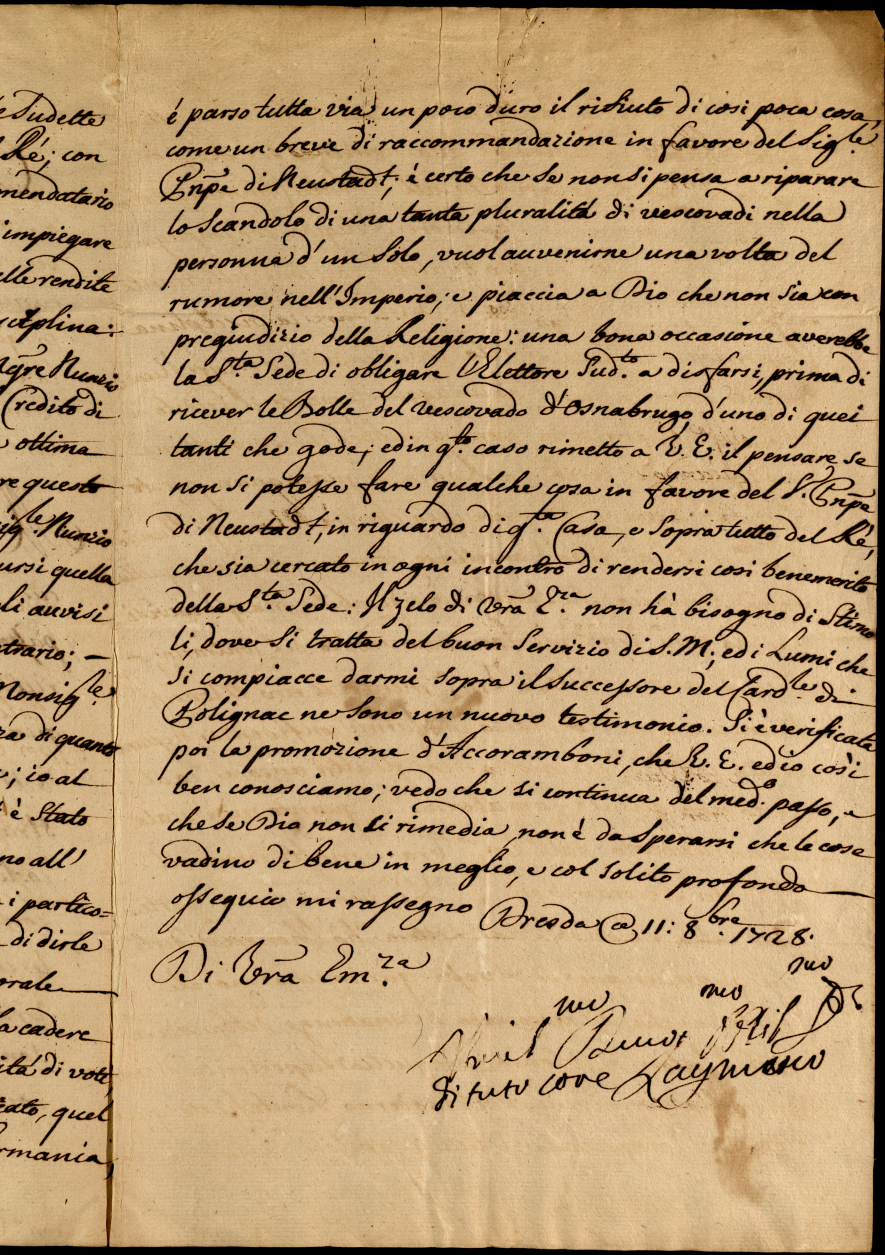 e Sudette
Ré; con
mendatario
impiegare
elle rendite
sciplina:
Mg̃re Nunzio
Credito di
ottima
re questo
sig.le Nunzio
ursi quella
li auvisi
trario; —
Monsig.le
za di quanto
; io al
è Stato
no all'
i partico=
di dirle
orale
la cadere
ità di voti
cato, quel
rmania,
é parso tutta via un poco duro il rifiuto di così poca cosa,
come un breve di raccommandazione in favore del Sig.le
Pñpe di Neustadt; è certo che se non si pensa a riparare
lo Scandolo di una tanta pluralità di vescovadi nella
personna d'un Solo, vuol auvenirne una volta del
rumore nell'Imperio; e piaccia a Dio che non sia con
pregiudizio della Religione: una bona occasione averebbe
la S.ta Sede di obligare l'Elettore Sud.to a disfarsi, prima di
ricever le Bolle del vescovado d'Osnabrugo, d'uno di quei
tanti che gode; ed in q.to caso rimetto a V. E. il pensare se
non si potesse fare qualche cosa in favore del S.r Pñpe
di Neustadt, in riguardo di q.ta Casa, e sopra tutto del Ré,
che sia cercato in ogni incontro di rendersi così benemerito
della S.ta Sede: Il zelo di Vrã E.za non hà bisogno di Stimo
li, dove si tratta del buon Servizio di S. M; ed i Lumi che
si compiacce darmi sopra il Successore del Card.le di
Polignac ne sono un nuovo testimonio. Si è verificata
poi la promozione d'Accoramboni, che V. E. ed io così
ben conosciamo; vedo che si continua del med.o passo, e
che se Dio non si rimedia, non è da sperarsi che le cose
vadino di bene in meglio, e col solito profondo
ossequio mi rassegno Dresda @ 11: 8bre. 1728.
Di Vrã Em.za
mo mo mo
di tuto core